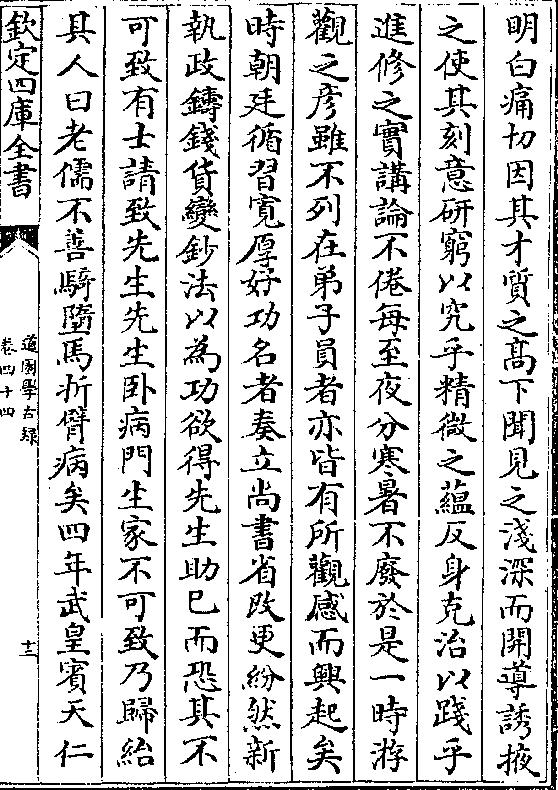 明白痛切因其才質之髙下聞見之淺深而開導誘掖
之使其刻意研窮以究乎精微之藴反身克治以踐乎
進修之實講論不倦每至夜分寒暑不廢於是一時㳺
觀之彦雖不列在弟子員者亦皆有所觀感而興起矣
時朝廷循習寛厚好功名者奏立尚書省改更紛然新
執政鑄錢貨變鈔法以為功欲得先生助己而恐其不
可致有士請致先生先生卧病門生家不可致乃歸紿
其人曰老儒不善騎墮馬折臂病矣四年武皇賓天仁
欽定四庫全書
道園學古録
卷四十四
十三